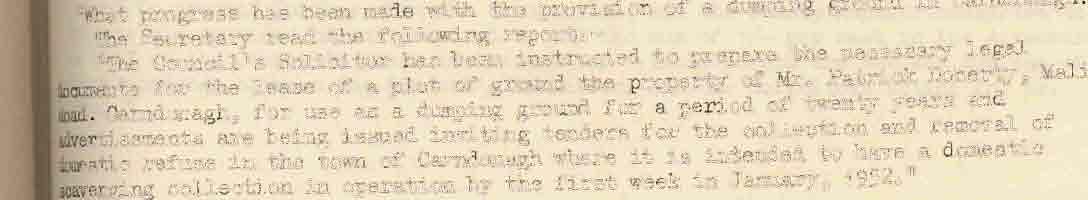 "What progress has been made with the provision of a dumping ground in Carndonagh.
The Secretary read the following report:-
"The Council's Solicitor has been instructed to prepare the necessary legal
documents for the lease of a plot of ground the property of Mr. Patrick Doherty, Mali
Road. Carndonagh, for use as a dumping ground for a period of twenty years and
advertisements are being issued inviting tenders for the collection and removal of
domestic refuse in the town of Carndonagh where it is intended to have a domestic
scavenging collection in operation by the first week in January, 1952."